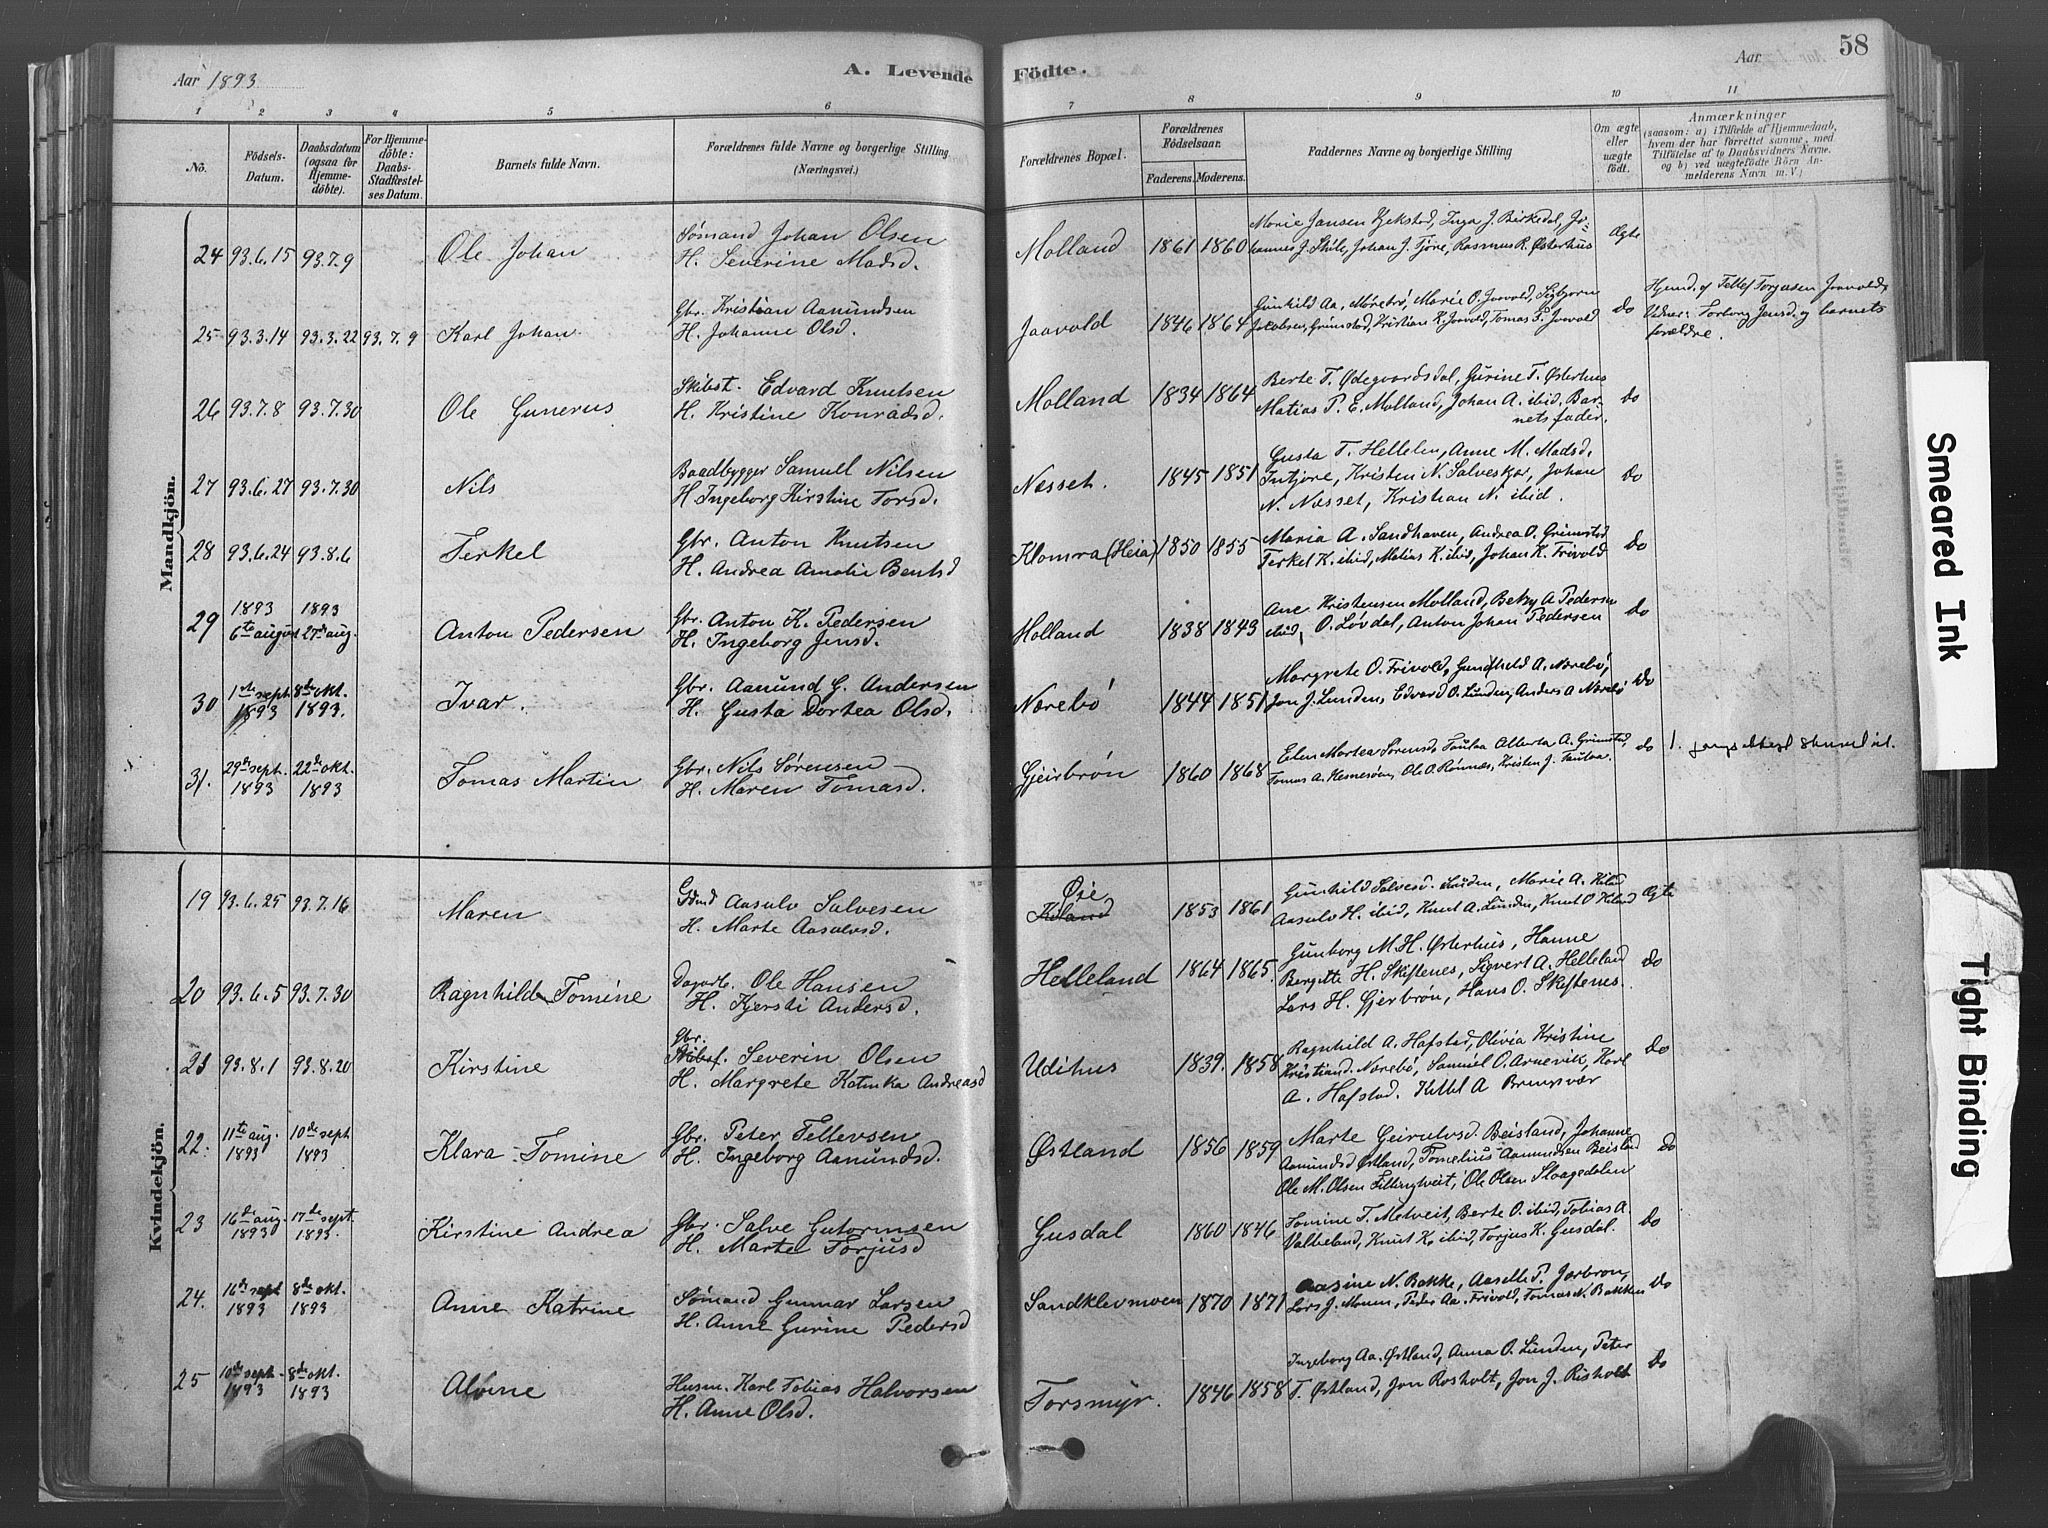 58
Aar 1893
A. Levende
Födte.
Aar
1 2 3 4 5 6 7 8 9 10 11
No.
Födsels-
Datum.
Daabsdatum
(ogsaa for
Hjemme-
döbte).
For Hjemme-
döbte:
Daabs-
Stadfæstel-
ses Datum.
Barnets fulde Navn.
Forældrenes fulde Navne og borgerlige Stilling
(Næringsvei.)
Forældrenes Bopæl.
Forældrenes
Födselsaar.
Faderens. Moderens.
Faddernes Navne og borgerlige Stilling
Om ægte
eller
uægte
födt.
Anmærkninger
(saasom: a) i Tilfælde af Hjemmedaab,
hvem der har forrettet samme, med
Tilföielse af to Daabsvidners Navne.
og b) ved uægtefödte Börn An-
melderens Navn m. V.)
Mandkjön.
24 93.6.15 93.7.9
Ole Johan
Sømand Johan Olsen
H. Severine Madsd.
Molland 1861 1860
Marie Jansen Kjekstad, Inga J. Birkedal, Jo-
hannes J. Skile, Johan J. Tjore, Rasmus R. Østerhus
Ægte
25 93.3.14 93.3.22 93.7.9
Karl Johan
Gbr. Kristian Aanundsen
H. Johanne Olsd.
Jaavold 1846 1864
Gunhild Aa. Mørebrø, Marie O. Joavold, Sigbjorn
Jakobsen, Grimstad, Kristian K. Joavold, Tomas F. Joavold
do
Hjemd. af Tellef Torgusen Joavold,
Vidner: Torborg Jensd. og barnets
forældre.
26 93.7.8 93.7.30
Ole Gunerus
Skibst. Edvard Knutsen
H. Kristine Konradsd.
Molland 1834 1864
Berte T. Ødegaardsdal, Gurine T. Østerhus
Matias P. E. Molland, Johan A. ibid, Bar-
netsfader.
do
27 93.6.27 93.7.30
Nils
Baadbygger Samuel Nilsen
H. Ingeborg Kirstine Torsd.
Næsset. 1845 1851
Gusta T. Hellelen, Anne M. Madsd.
Intjore, Kristen N. Salveskjær, Johan
N. Næsset, Kristian N. ibid.
do
28 93.6.24 93.8.6
Terkel
Gbr. Anton Knutsen
H. Andrea Amalie Bentsd
Klomra (Heia) 1850 1855
Maria A. Sandhaven, Andrea O. Grimstad
Terkel K. ibid, Matias K. ibid, Johan K. Frivold
do
29 1893 1893
6te august 27de aug.
Anton Pedersen
Gbr. Anton K. Pedersen
H. Ingeborg Jensd.
Molland 1838 1843
Ane Kristensen Molland, Betsy A. Pedersen
ibid, O. Løvdal, Anton Johan Pedersen
do
30 1ste sept. 8de okt.
1893 1893.
Ivar.
Gbr. Aanund G. Andersen
H. Gusta Dortea Olsd.
Nærebø 1844 1851
Margrete O. Frivold, Gundhild A. Nærebø,
Jon J. Lunden, Edvard O. Lunden, Anders A. Nærebø
do
31. 29de sept. 22de okt.
1893 1893
Tomas Martin
Gbr. Nils Sørensen
H. Maren Tomasd.
Gjeirbrøn 1860 1868
Elen Martea Sørensd, Taulaa Alberta A. Grimstad,
Tomas A. Hesnesøen, Ole O. Rønnæs, Kristen J. Taulaa.
do
Kvindekjön.
19 93.6.25 93.7.16
Maren
Gbmd Aasulv Salvesen
H. Marte Aasulvsd.
Øie
Kiland 1853 1861
Gunhild Salvesd. Lunden, Marie A. Kiland
Aasulv H. ibid, Knut A. Lunden, Knut O. Kiland
Ægte
20 93.6.5 93.7.30
Ragnhilde Tomine
Dagarb. Ole Hansen
H. Kjersti Andersd.
Helleland 1864 1865.
Gunborg M. H. Østerhus, Hanne
Bergitte H. Skeftenes, Sigvert A. Helleland
Lars H. Gjerbrøn, Hans O. Skeftenes.
do
21 93.8.1 93.8.20
Kirstine
Gbr.
Skibsf. Severin Olsen
H. Margrete Katinka Andreasd
Udihus 1839. 1858
Ragnhild A. Hafstad, Olivia Kristine
Kristiand. Nærebø, Samuel O. Arnevik, Karl
A. Hafstad. Kittel A Bringsvær
do
22. 11te aug. 10de sept
1893 1893
Klara Tomine
Gbr. Peter Tellevsen
H. Ingeborg Aanundsd.
Østland 1856 1859
Marte Geirulvsd. Beisland, Johanne
Aanundsd Østland, Tomelius Aanundsen Beisland
Ole M. Olsen Fillingtveit, Ole Olsen Skaagedalen
do
23 16de aug. 17de sept.
1893 1893.
Kirstine Andrea
Gbr. Salve Gutormsen
H. Marte Torjusd
Gusdal 1860 1846
Tomine T. Metveit, Berte O. ibid, Tobias A.
Valbeland, Knut K. ibid, Torjus K. Gusdal.
do
24. 16de sept 8de okt.
1893 1893
Anne Katrine
Sømand Gunnar Larsen
H. Anne Gurine Pedersd
Sandklevmoen 1870 1871
Aasine N. Bakke, Aaselle P. Jorbron,
Lars J. Moen, Peder Aa. Frivold, Tomas N. Bakken
do
25 10de sept. 8de okt.
1893 1893
Alvine
Husm. Karl Tobias Halvorsen
H. Anne Olsd.
Torsmyr. 1846 1858
Ingeborg Aa. Østland, Anna O. Lunden, Peter
T. Østland, Jon Rosholt, Jon J. Risholt
do
Smeared Ink
Tight Binding